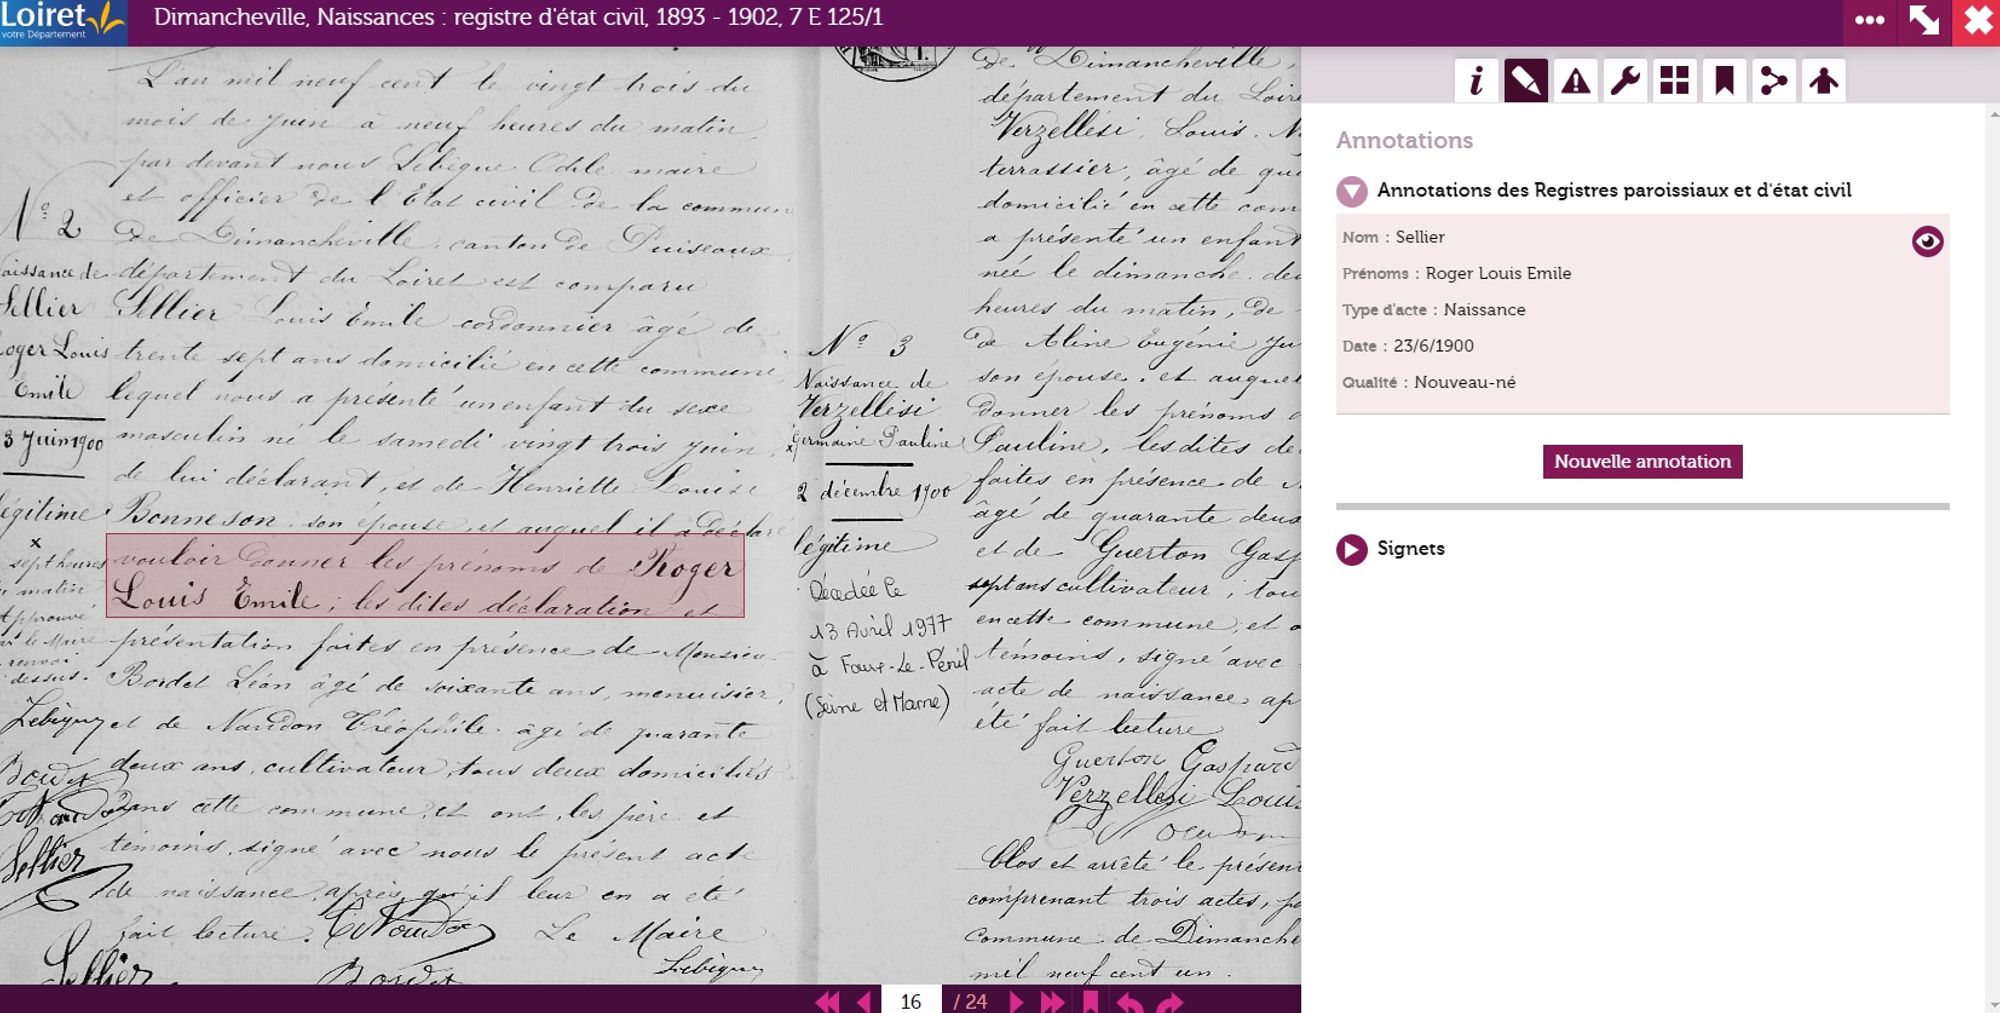 Loiret
votre Département
Dimancheville, Naissances : registre d'état civil, 1893 - 1902, 7 E 125/1
L'an mil neuf cent le vingt trois du
mois de Juin à neuf heures du matin,
par devant nous Lebigue Odile maire
et officier de l'Etat civil de la commune
de Dimancheville, canton de Puiseaux,
département du Loiret est comparu
Sellier Louis Emile cordonnier âgé de
trente sept ans domicilié en cette commune,
lequel nous a présenté un enfant du sexe
masculin né le samedi vingt trois juin, x
de lui déclarant, et de Henriette Louise
Bonneson son épouse, et auquel il a déclaré
vouloir donner les prénoms de Roger
Louis Emile ; les dites déclaration et
présentation faites en présence de Monsieur
Bordet Léon âgé de soixante ans, menuisier,
et de Naudon Théophile âgé de quarante
deux ans, cultivateur, tous deux domiciliés
dans cette commune, et ont, les père et
témoins, signé avec nous le présent acte
de naissance, après qu'il leur en a été
fait lecture.
Le Maire
Lebigue
Sellier
Bordet
N° 2
aissance de
Sellier
oger Louis
Emile
3 Juin 1900
égitime
x
sept heures
matin
Approuvé
le Maire
renvoi
dessus.
Lebigue
Sellier
N° 3
Naissance de
Verzellesi
Germaine Pauline
2 décembre 1900
légitime
Décédée le
13 Avril 1977
à Faux-Le-Pénil
(Seine et Marne)
de Dimancheville,
département du Loire
Verzellesi, Louis.
terrassier, âgé de qu
domicilié en cette com
a présenté un enfant
née le dimanche deu
heures du matin, de
de Aline Eugénie Ju
son épouse, et auquel
donner les prénoms
Pauline, les dites de
faites en présence de
âgé de quarante deux
et de Guerton Gasp
sept ans cultivateur ; tou
en cette commune, et o
témoins, signé avec
acte de naissance ap
été fait lecture
Guerton Gaspard
Verzellesi Louis
Clos et arrêté le présen
comprenant trois actes, p
commune de Dimanche
mil neuf cent un.
Annotations
Annotations des Registres paroissiaux et d'état civil
Nom : Sellier
Prénoms : Roger Louis Emile
Type d'acte : Naissance
Date : 23/6/1900
Qualité : Nouveau-né
Nouvelle annotation
Signets
16 / 24